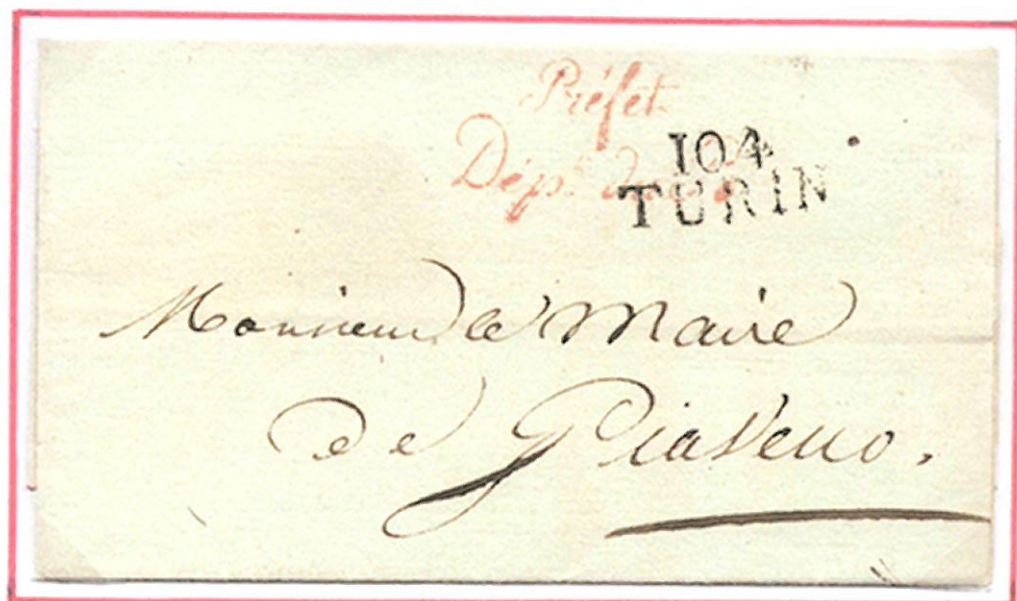 Préfet
Dépt. du Pô
104
TURIN
Monsieur le Maire
de Giaveno.